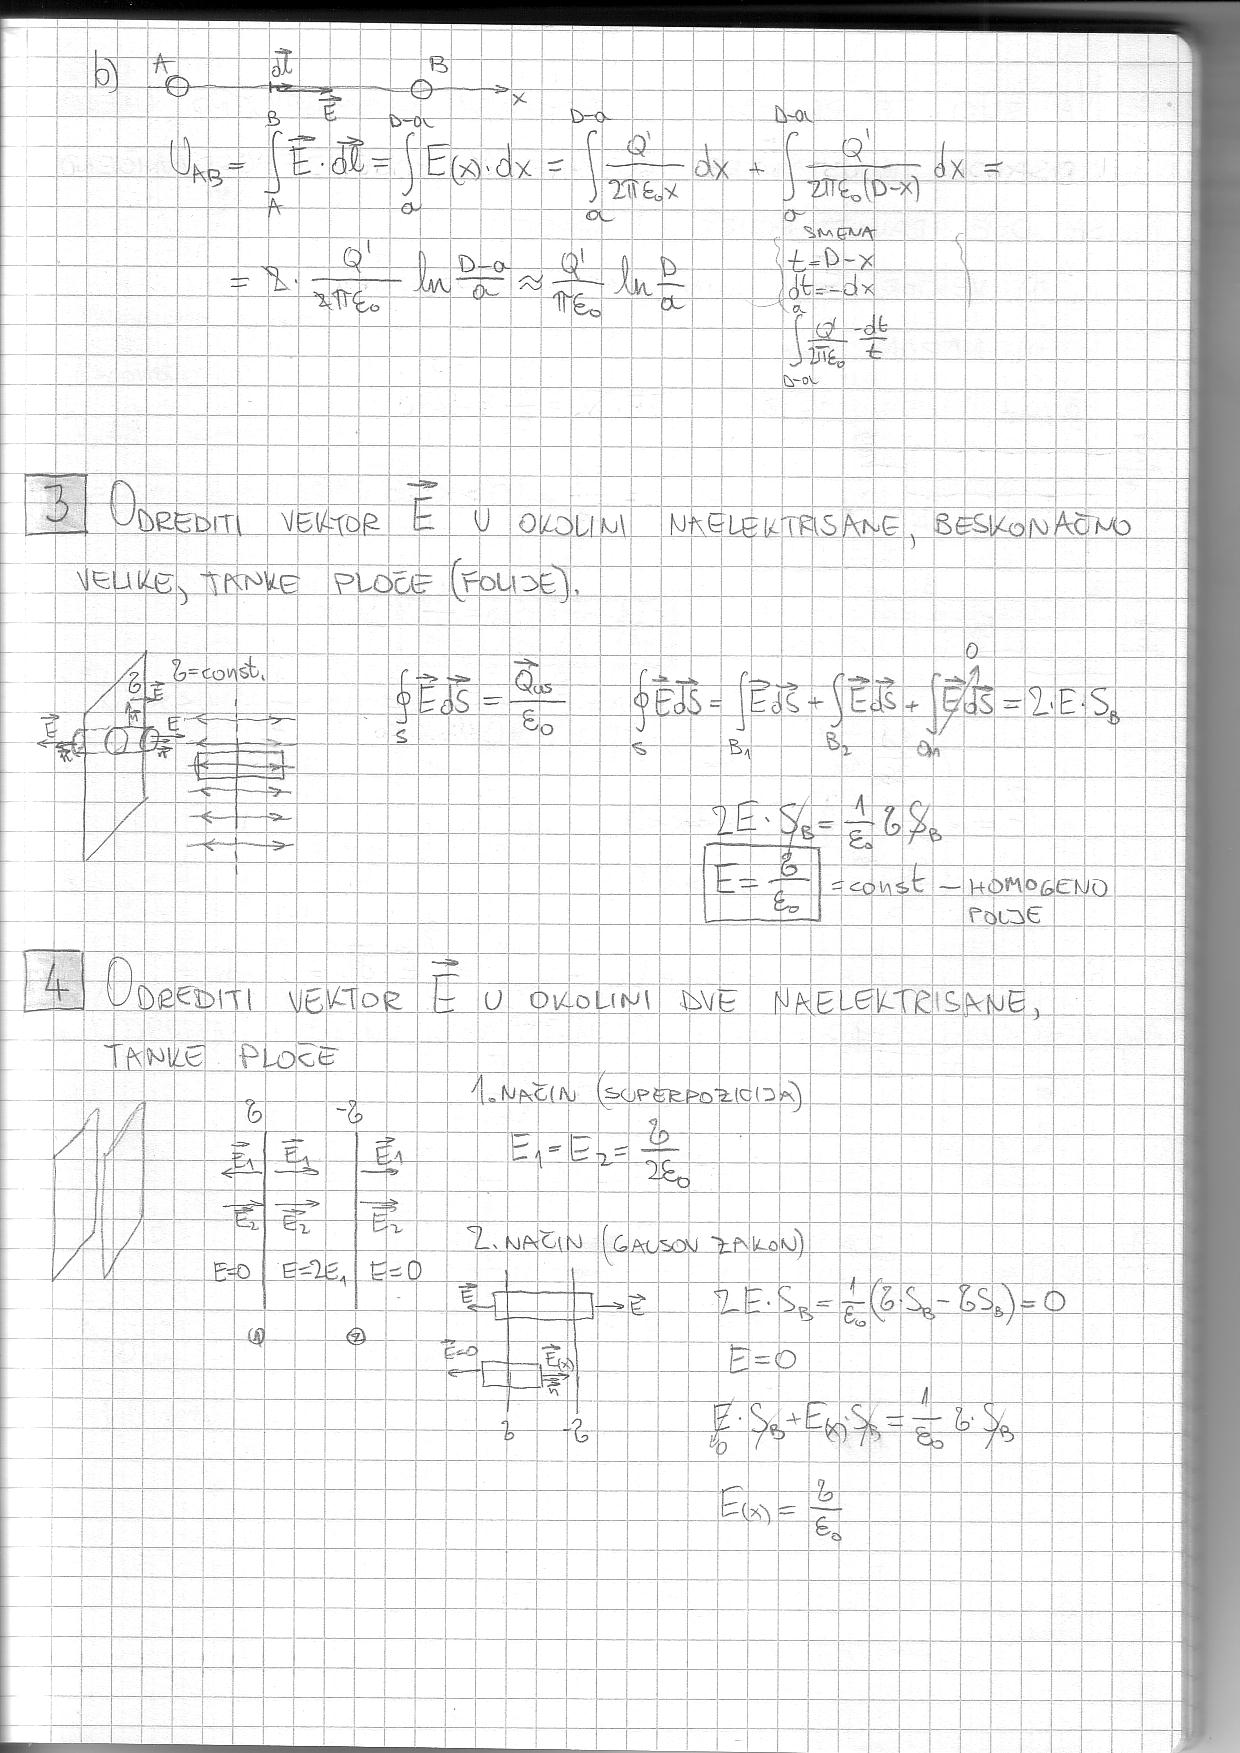 b) A dl⃗ B
E⃗ x
U_AB = ∫_A^B E⃗ · dl⃗ = ∫_a^{D-a} E(x) · dx = ∫_a^{D-a} Q'/(2πε₀x) dx + ∫_a^{D-a} Q'/(2πε₀(D-x)) dx =
SMENA
t = D-x
dt = -dx
∫_{D-a}^a Q'/(2πε₀) -dt/t
= 2 · Q'/(2πε₀) ln (D-a)/a ≈ Q'/(πε₀) ln D/a
3 ODREDITI VEKTOR E⃗ U OKOLINI NAELEKTRISANE, BESKONAČNO
VELIKE, TANKE PLOČE (FOLIJE).
σ σ=const.
E⃗ n⃗ E⃗ n⃗ E⃗ n⃗
∮_S E⃗ dS⃗ = Q⃗_us/ε₀
∮_S E⃗ dS⃗ = ∫_B₁ E⃗ dS⃗ + ∫_B₂ E⃗ dS⃗ + ∫_om E⃗ dS⃗ = 2·E·S_B
0
2E · S_B = 1/ε₀ σ S_B
E = σ/ε₀ = const – HOMOGENO
POLJE
4 ODREDITI VEKTOR E⃗ U OKOLINI DVE NAELEKTRISANE,
TANKE PLOČE
σ -σ
E⃗₁ E⃗₁ E⃗₁
E⃗₂ E⃗₂ E⃗₂
E=0 E=2E₁ E=0
① ②
1. NAČIN (SUPERPOZICIJA)
E₁ = E₂ = σ/2ε₀
2. NAČIN (GAUSOV ZAKON)
E⃗ E⃗
E⃗=0 E⃗(x) n⃗
σ -σ
2E · S_B = 1/ε₀ (σ·S_B - σS_B) = 0
E = 0
E · S_B + E(x) · S_B = 1/ε₀ σ · S_B
0
E(x) = σ/ε₀